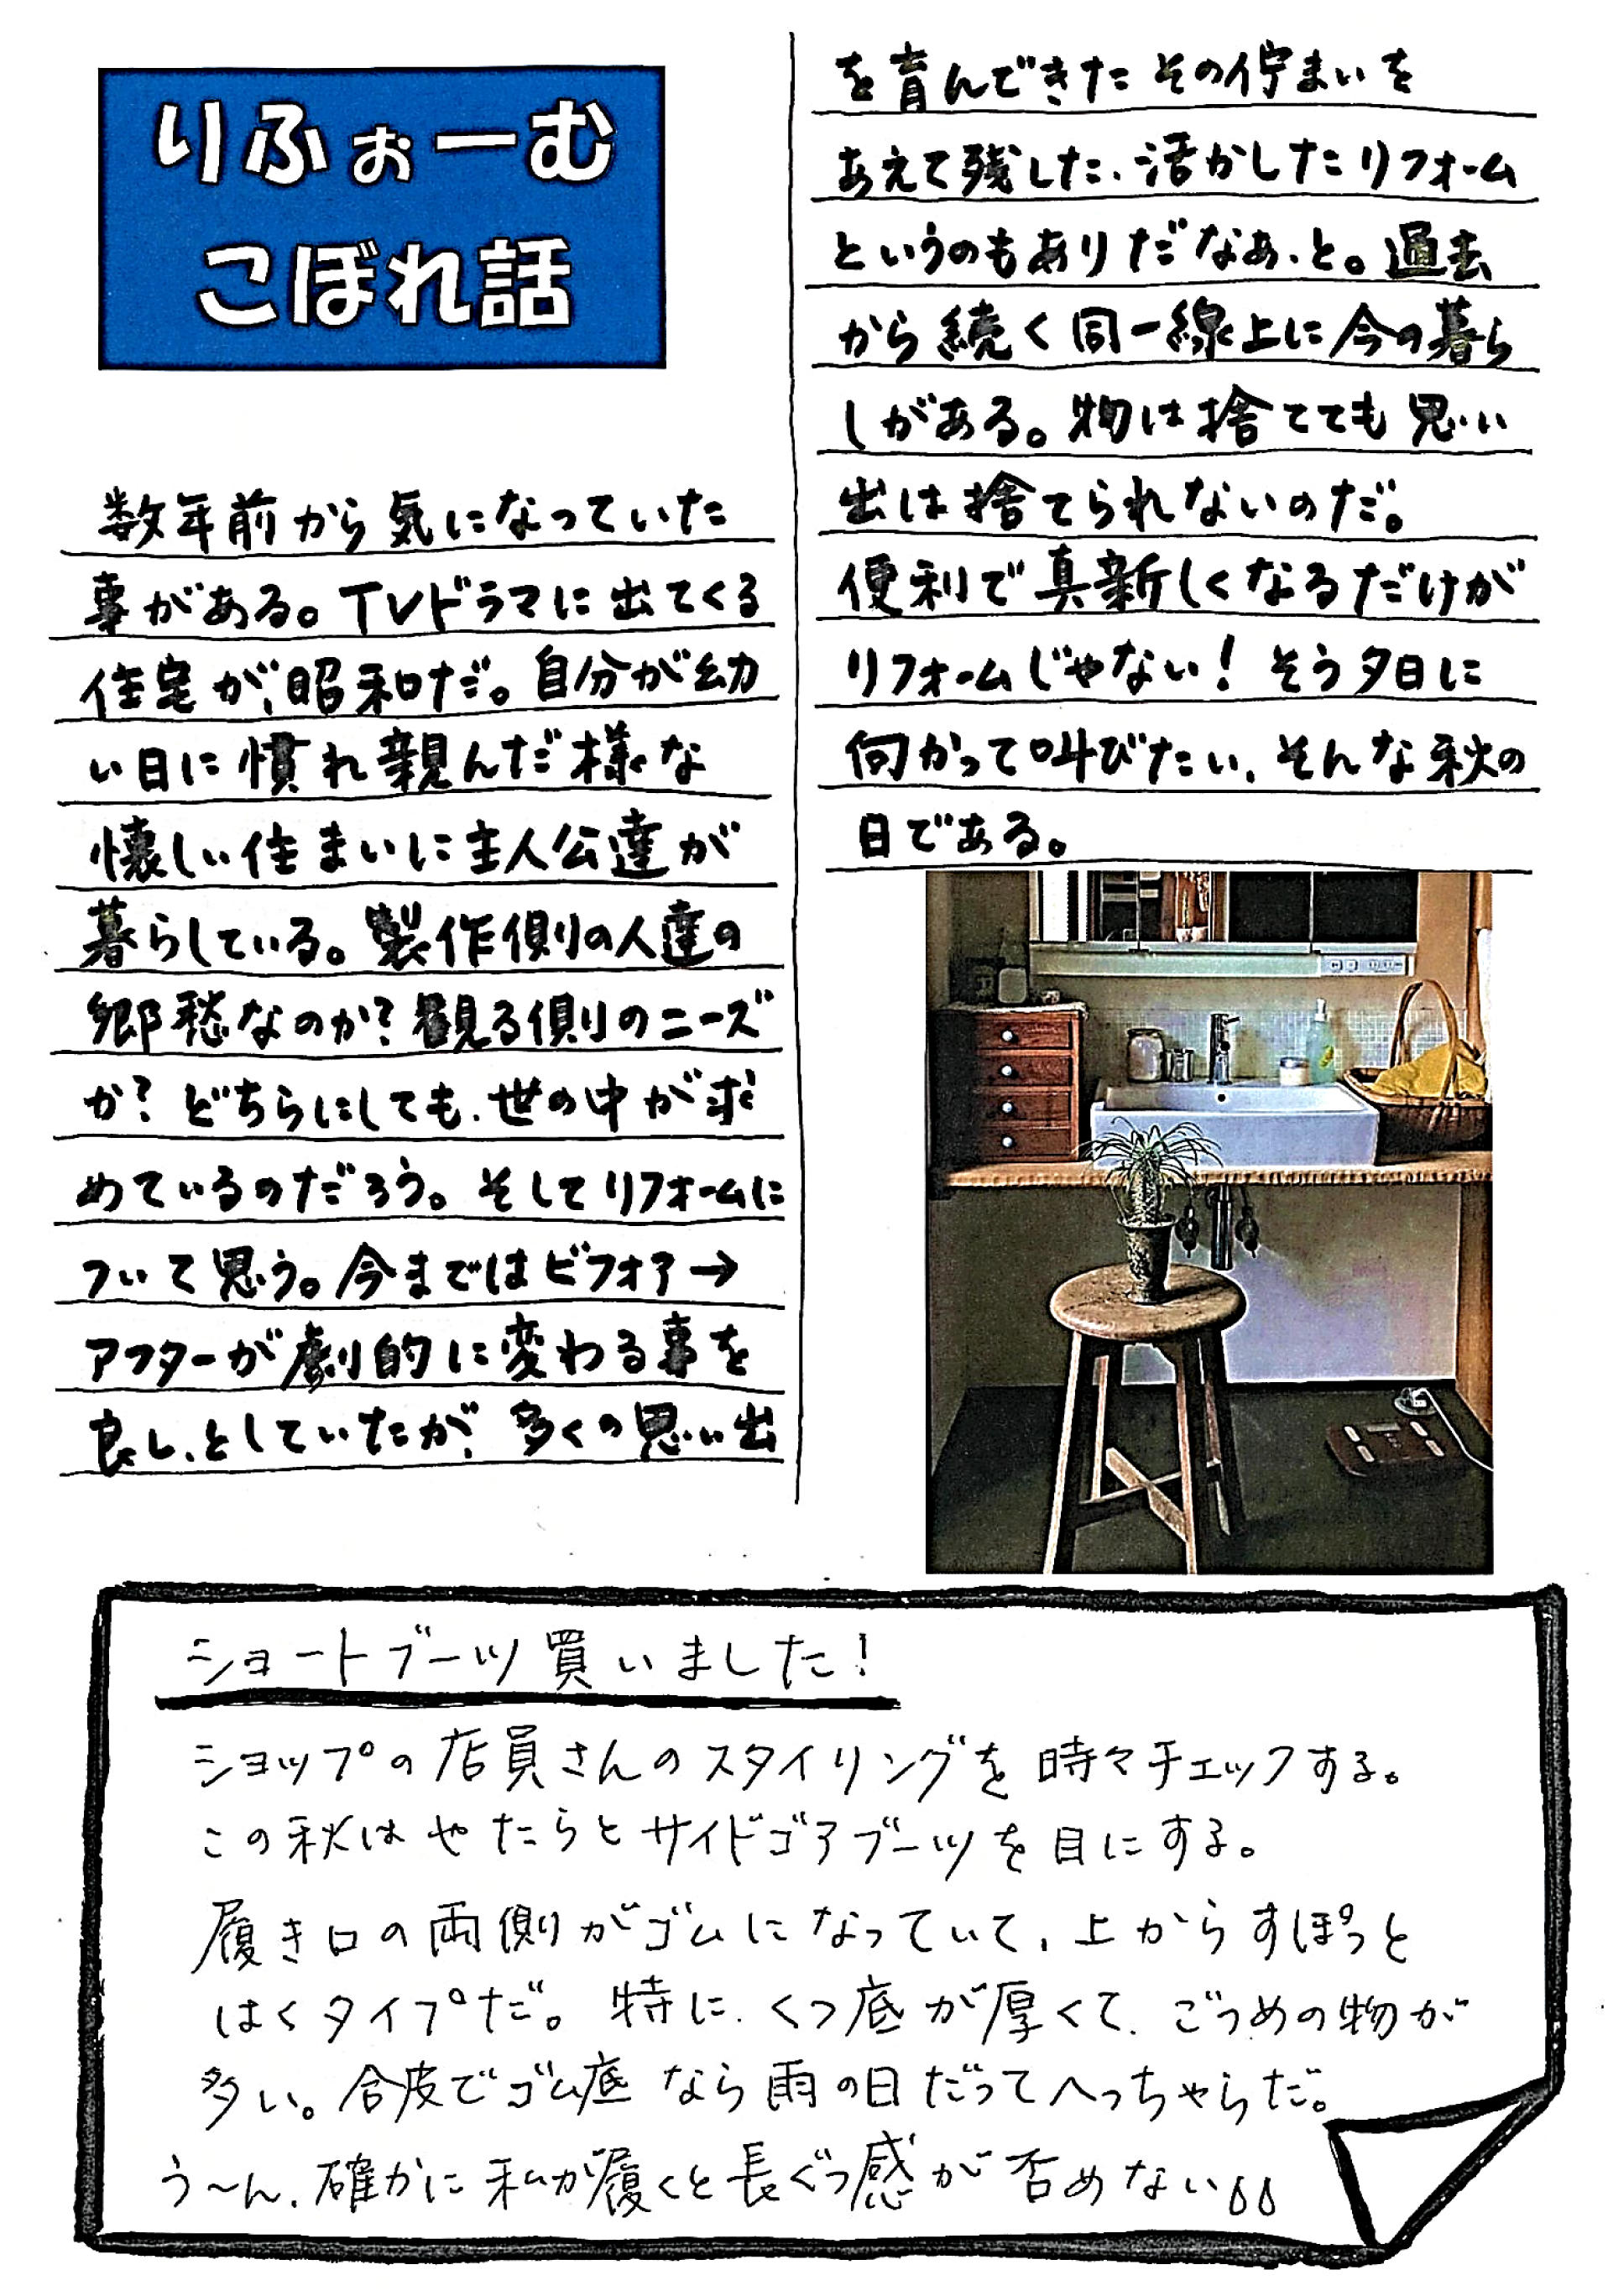 りふぉーむ
こぼれ話
数年前から気になっていた
事がある。TVドラマに出てくる
住宅が、昭和だ。自分が幼
い日に慣れ親んだ様な
懐しい住まいに主人公達が
暮らしている。製作側の人達の
郷愁なのか?観る側のニーズ
か?どちらにしても、世の中が求
めているのだろう。そしてリフォームに
ついて思う。今まではビフォア→
アフターが劇的に変わる事を
良し、としていたが、多くの思い出
を育んできたその佇まいを
あえて残した、活かしたリフォーム
というのもありだなぁ、と。過去
から続く同一線上に今の暮ら
しがある。物は捨てても思い
出は捨てられないのだ。
便利で真新しくなるだけが
リフォームじゃない!そう夕日に
向かって叫びたい、そんな秋の
日である。
ショートブーツ買いました!
ショップの店員さんのスタイリングを時々チェックする。
この秋はやたらとサイドゴアブーツを目にする。
履き口の両側がゴムになっていて、上からすぽっと
はくタイプだ。特に、くつ底が厚くて、ごつめの物が
多い。合皮でゴム底なら雨の日だってへっちゃらだ。
う〜ん、確かに私が履くと長ぐつ感が否めない